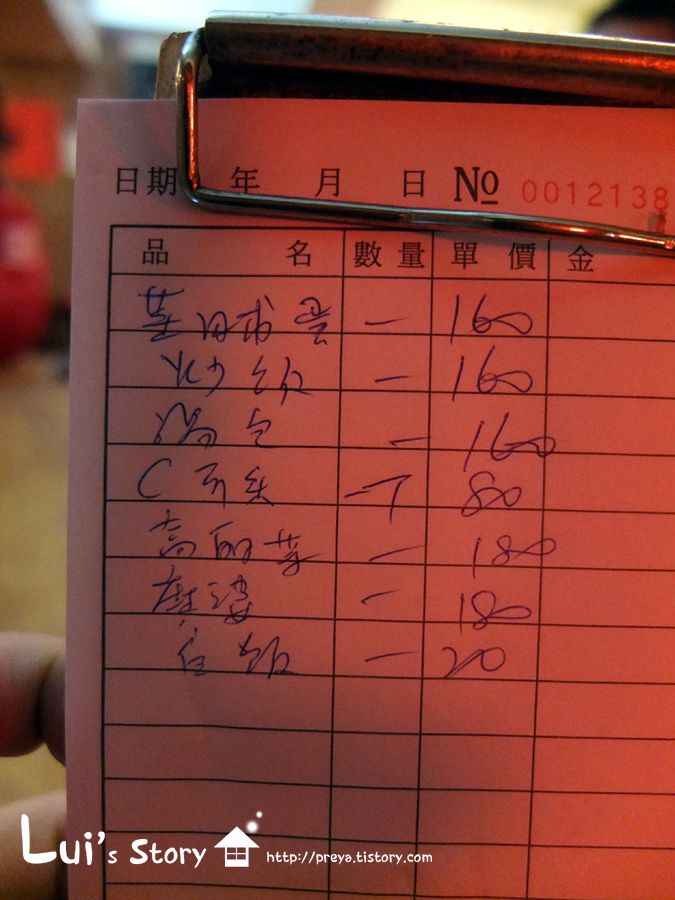 日期 年 月 日 No 0012138
品 名 數量 單 價 金
一 160
炒飯 一 160
湯包 一 160
C 80
高的菜 一 180
一 180
白飯 一 20
Lui's Story http://preya.tistory.com